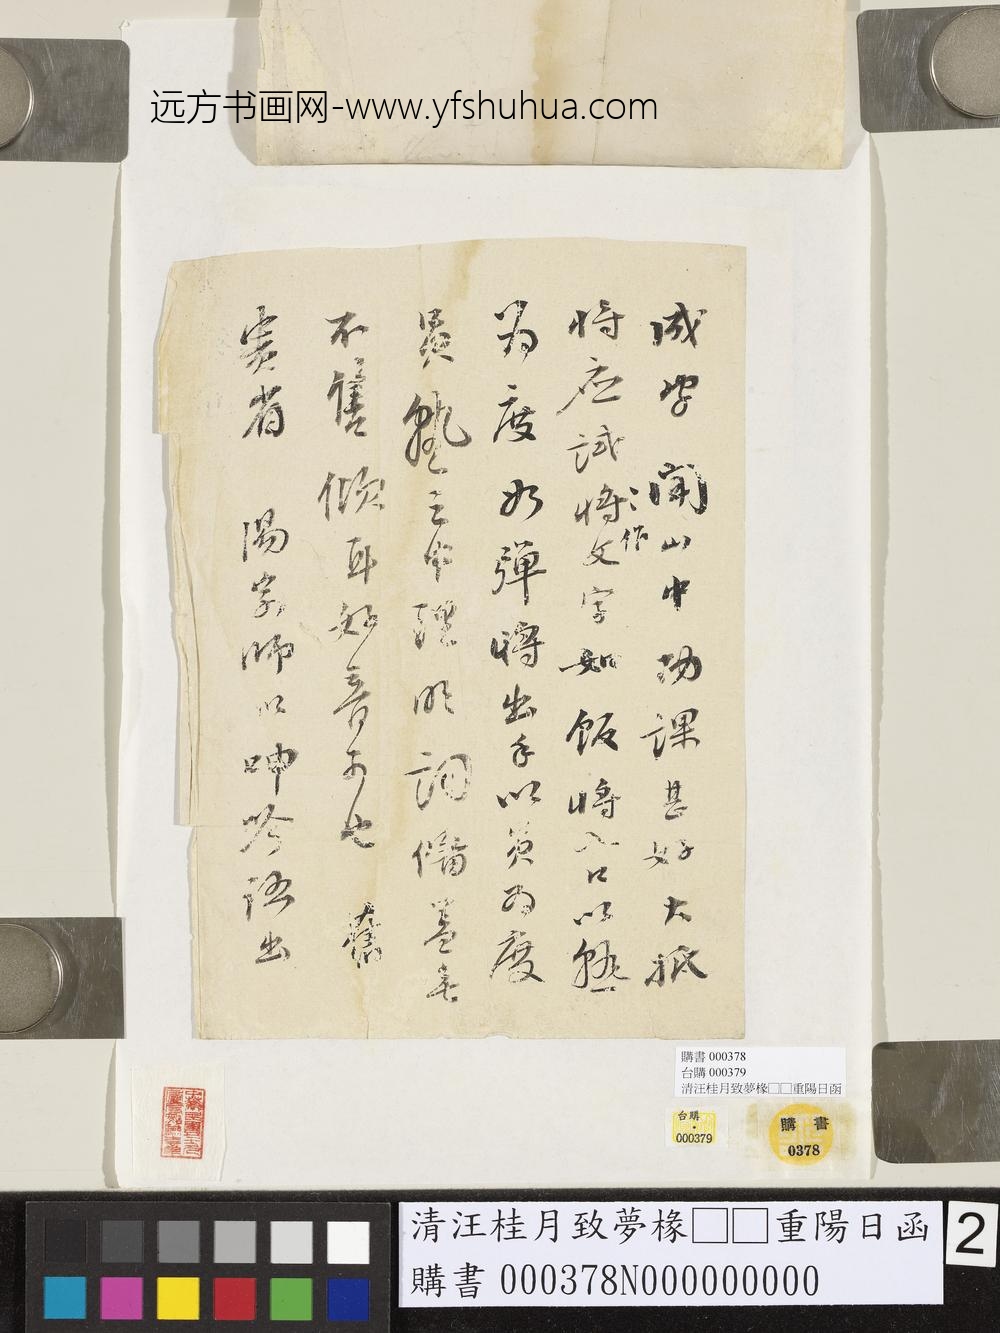 远方书画网-www.yfshuhua.com
字聞山中功課甚好大抵
將應試將作文字如飯將入口以熟
為度如彈將出手以員為度
員熟之中理明詞備蓋無
不售傾耳好音可也
賓省 陽家師以呻吟語出
購書 000378
台購 000379
清汪桂月致夢椽□□重陽日函
台購
000379
購書
0378
清汪桂月致夢椽□□重陽日函
購書 000378N000000000
2